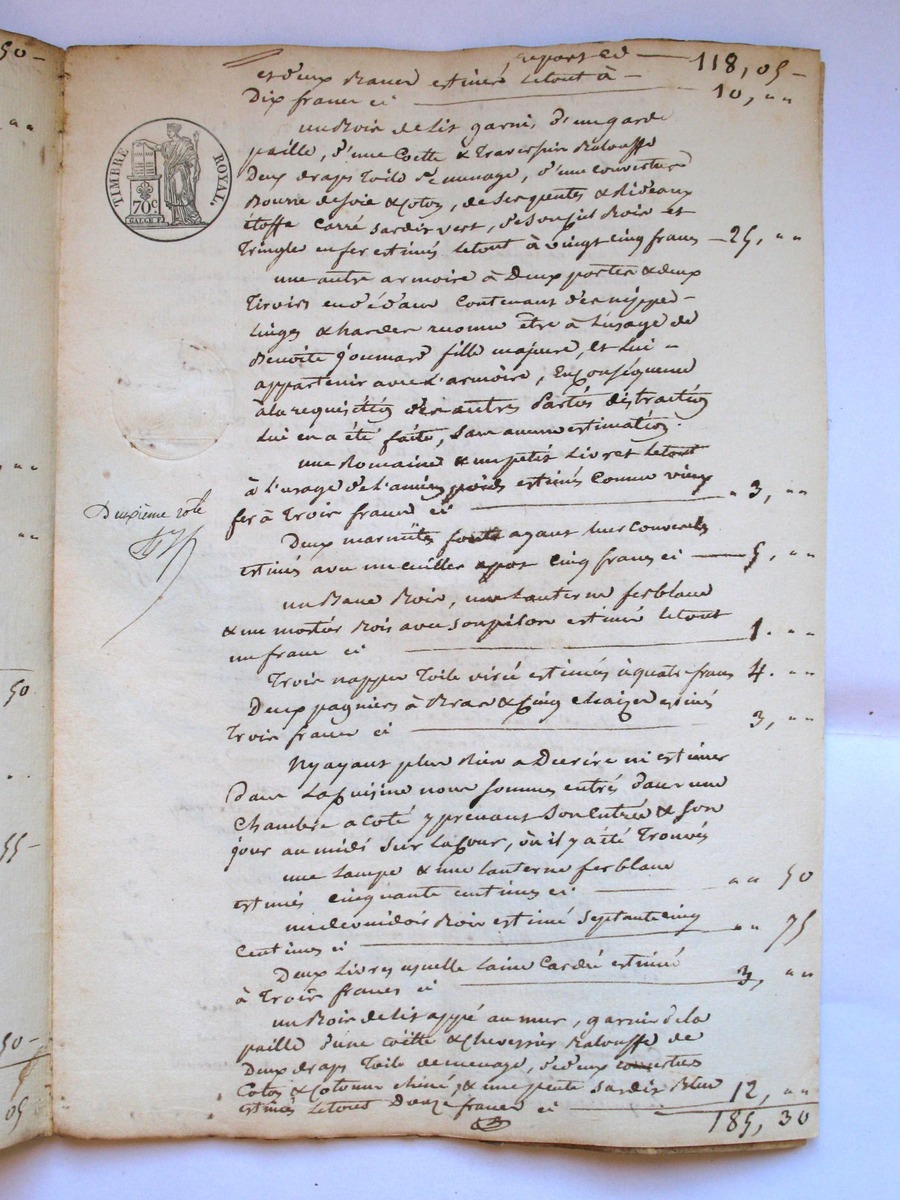 report ed — 118, 05 —
et deux Bancs estimés le tout à —
Dix francs ci — 10, " "
un Bois de Lit garni, d'un garde
paille, d'une Coëtte & Traversin Balouffe
Deux draps Toile de menage, d'une couverture
Bourre de soie & Coton, de Sergentes & Rideaux
étoffe Carré Sardis vert, de son fist Bois et
Tringle en fer estimés le tout à vingt cinq francs — 25, " "
une autre armoire à Deux portes & deux
Tiroirs en dédans Contenant des nippes —
Linges & hardes reconnu être à L'usage de
Benoite Goumard fille majeure, et Lui —
appartenir avec L'armoire, En Conséquence
à la requisition des autres Parties distraction
Lui en a été faite, Sans aucune estimation.
une Romaine & un petit Livret le tout
à L'usage de L'ancien poids estimés Comme vieux
fer à Trois francs ci — 3, " "
TIMBRE ROYAL.
70c
Deuxième role
Deux marmites fonte ayant leur Couvercles
estimés avec un cuiller à pot Cinq francs ci — 5, " "
un Banc Bois, une Lanterne ferblanc
& un mortier Bois avec Son pilon estimés le tout
un franc ci — 1. " "
Trois nappes Toile virié estimés à quatre francs 4. " "
Deux pagniers à Bras & Cinq chaises estimés
Trois francs ci — 3, " "
N'y ayant plus Rien a Decrire ni estimer
dans La Cuisine nous Sommes entrés dans une
Chambre a Coté y prenant Son Entrée & Son
jour au midi Sur La Cour, où il y a été Trouvés
une Lampe & une Lanterne ferblanc
estimés Cinquante centimes ci — " " 50
un devuidoir Bois estimé Septante cinq
Centimes ci — " " 75
Deux Livres usuelle Laine Cardé estimé
à Trois francs ci — 3, " "
un Bois de Lit appé au mur, garni de la
paille d'une Coëtte & Chevessier Balouffe de
Deux draps Toile de menage, de deux couvertes
Coton & Cotonne chiné, & une pente Sardis Bleu
estimés Le tout Douze francs ci — 12, " "
185, 30